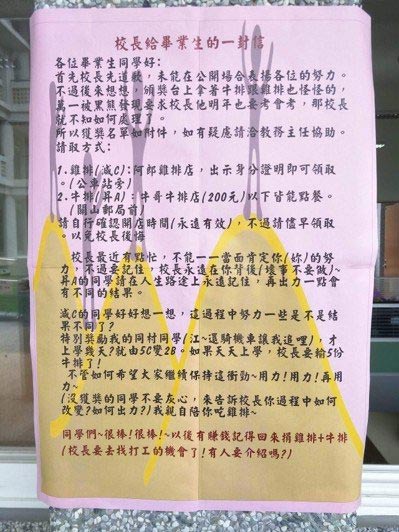 校長給畢業生的一封信
各位畢業生同學好:
首先校長先道歉,未能在公開場合表揚各位的努力。
不過後來想想,頒獎台上拿著牛排跟雞排也怪怪的,
萬一被黑熊發現要求校長他明年也要考會考,那校長
就不知如何處理了。
所以獲獎名單如附件,如有疑慮請洽教務主任協助。
請取方式:
1.雞排(減C):阿郎雞排店,出示身分證明即可領取
。(公車站旁)
2.牛排(昇A):牛哥牛排店(200元)以下皆能點餐。
(關山郵局前)
請自行確認開店時間(永遠有效),不過請儘早領取
。以免校長後悔
校長最近有點忙,不能一一當面肯定你(妳)的努
力,不過要記住,校長永遠在你背後(壞事不要做)~
昇A的同學請在人生路途上永遠記住,再出力一點會
有不同的結果。
減C的同學好好想一想,這過程中努力一些是不是結
果不同了?
特別獎勵我的同村同學(江~還騎機車讓我追哩),才
上學幾天?就由5C變2B。如果天天上學,校長要輸5份
牛排了!
不管如何希望大家繼續保持這衝勁~用力!用力!再用
力~
(沒獲獎的同學不要灰心,來告訴校長你過程中如何
改變?如何出力?)我親自陪你吃雞排~
同學們~很棒!很棒!~以後有賺錢記得回來捐雞排+牛排
(校長要去找打工的機會了!有人要介紹嗎?)